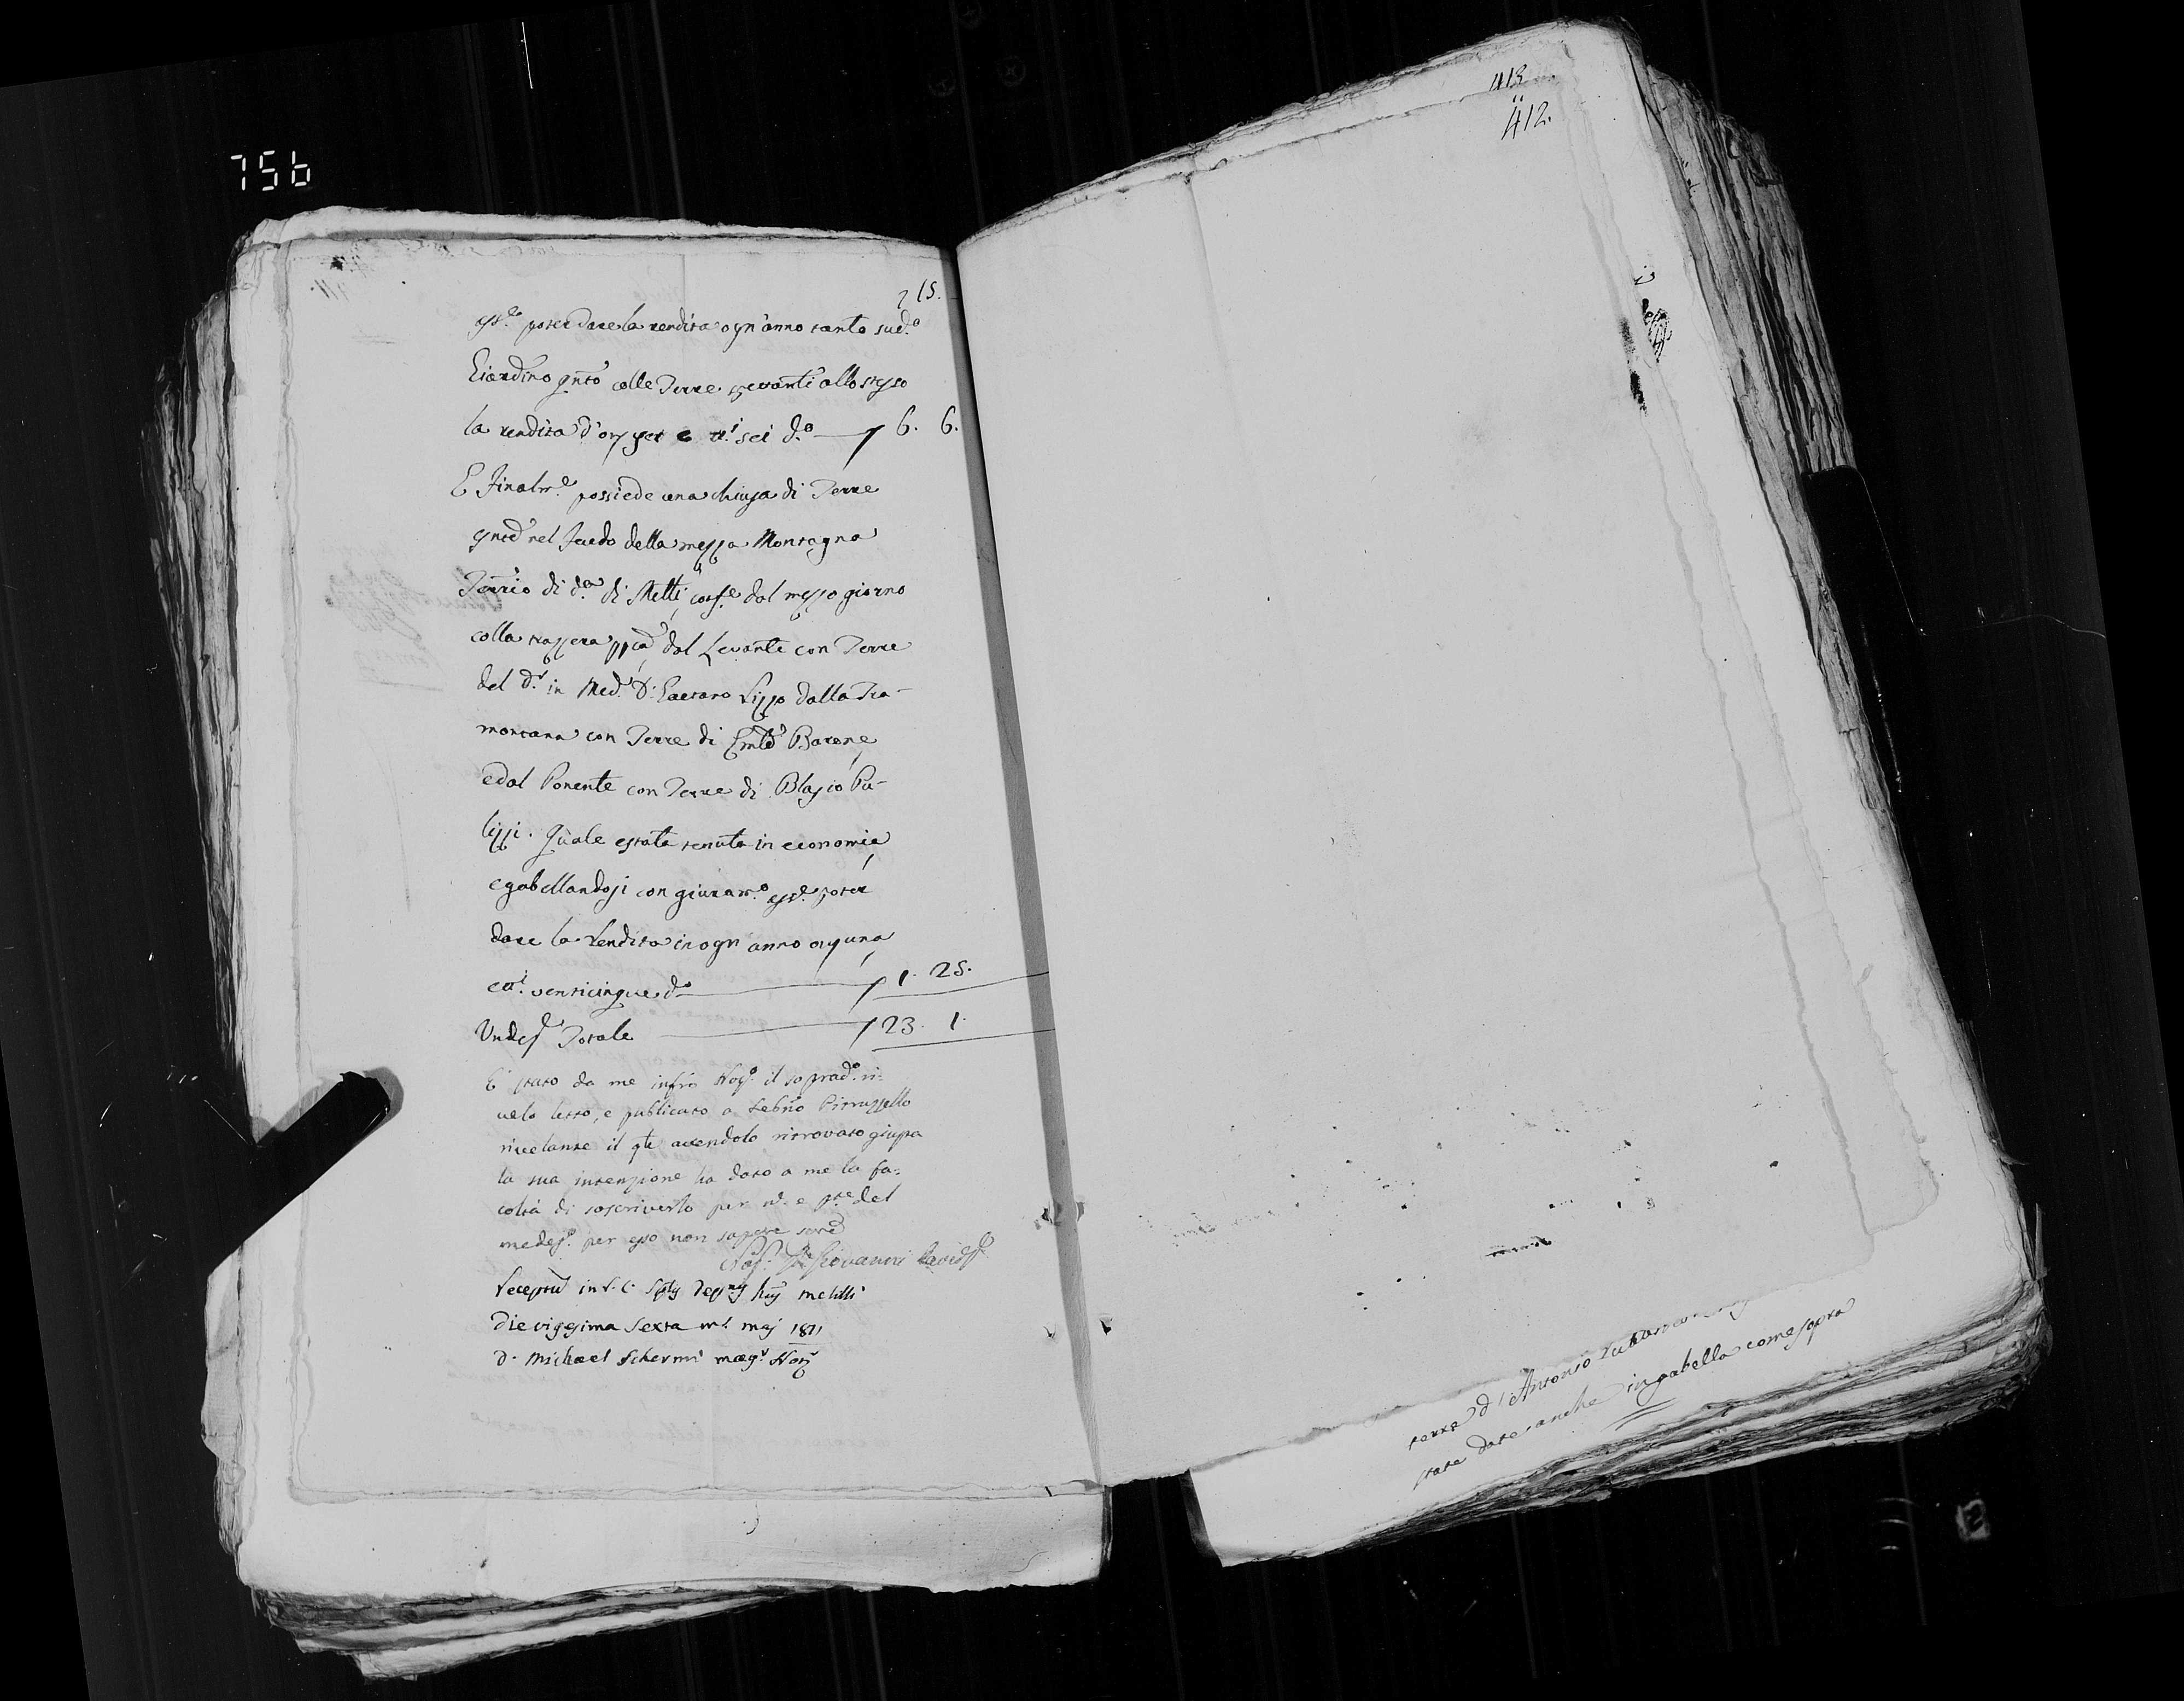 756
15.
poter dare la rendita ogn'anno tanto sud.o
Giardino colle Terre allo stesso
la rendita d'onz sei e tt.i sei d.o 6. 6.
E Finalm.e possiede una chiusa di Terre
nel Feudo della mezza Montagna
di d.a di Melli, conf.e dal mezzo giorno
colla trazzera dal Levante con Terre
del D.r in Med.a D. Gaetano Lizzo dalla Tra-
montana con Terre di Barone,
e dal Ponente con Terre di Blasio Pu-
lizzi. Quale estata tenuta in economia,
e gabellandosi con giuram.o poter
dare la rendita in ogn anno onz una,
e tt.i venticinque d.o 1. 25.
Totale 23. 1.
E' stato da me infr̃o Not.o il soprad.o ri-
velo letto, e publicato a Seb̃no Pitruzzello
rivelante il q̃le avendolo ritrovato giusta
la sua intenzione ha dato a me la fa-
coltà di soscriverlo per n.e e p̃te del
medes.o per esso non sapere
Not. Giovanni
die viggesima sexta m.s maj 1811
D. Michael Schermi mag.r Not.
413
412.
terre d'Antonio
state date anche in gabella come sopra